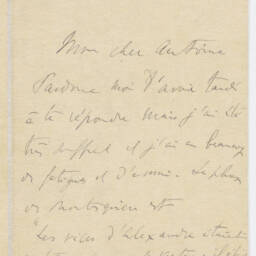 Mon cher Antoine
Pardonne moi d'avoir tardé
à te répondre mais j'ai été
très souffrant et j'ai eu beaucoup
de fatigues et d'ennui. La phrase
de Montesquieu est
"Les vices d'Alexandre étaient